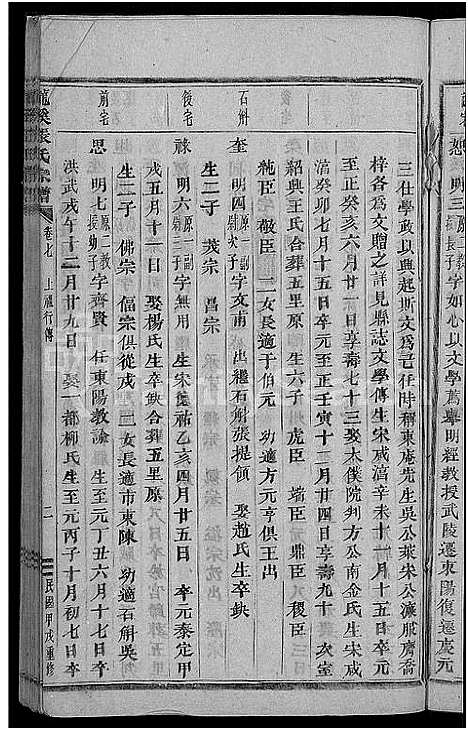 恕 明三原一教授長子字如心以文學薦舉明經教授武陵遷東陽復遷慶元
三任學政以興起斯文爲己任時稱東庵先生吳公萊宋公濂胡公喬
梓各爲文贈之詳見縣志文學傳生宋咸淳辛未十月十五日卒元
至正癸亥六月廿一日享壽七十三娶太僕院判方公南金氏生宋咸
淳癸卯七月十五日卒元至正壬寅十二月廿四日享壽九十 次室
紹興王氏合葬五里原 生六子 虎臣 墻臣 鼎臣 稷臣
純臣 敬臣 二女長適于伯元 幼適方元亨俱王出
石斛
奎 明四原一副尉次子字文甫 出繼石斛張提領 娶趙氏生卒缺
生二子 茂宗 昌宗
後宅
祿 明六原一副尉三子字無用 生宋德祐乙亥四月廿五日 卒元泰定甲
戌五月十二日 娶楊氏生卒缺合葬五里原
生二子 佛宗 偪宗俱從戎 二女長適市東陳 幼適石斛吳
前宅
思 明七原二教授幼子字齊賢 任東陽教諭 生至元丁丑六月十七日卒
洪武戊午十二月廿九日 娶一都柳氏生至元丙子十月初七日卒
龍溪張氏宗譜 卷七 上雍行傳 二 民國甲戌重修